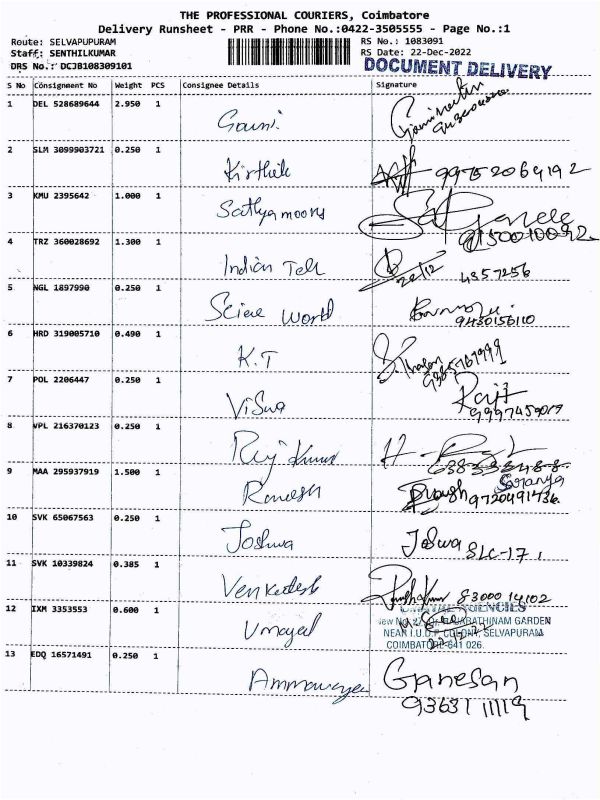 THE PROFESSIONAL COURIERS, Coimbatore
Delivery Runsheet - PRR - Phone No.:0422-3505555 - Page No.:1
Route: SELVAPUPURAM
Staff: SENTHILKUMAR
DRS No.: DCJB108309101
RS No.: 1083091
RS Date: 22-Dec-2022
DOCUMENT DELIVERY
S No Consignment No Weight PCS Consignee Details Signature
1 DEL 528689644 2.950 1
2 SLM 3099903721 0.250 1 Kirthik 9952064192
3 KMU 2395642 1.000 1 Sathyamoors
9150010092
4 TRZ 360028692 1.300 1 Indian Tell 22/12 4357256
5 NGL 1897990 0.250 1 World
9430156110
6 HRD 319005710 0.490 1 K.T
7 POL 2206447 0.250 1 Viswa
8 VPL 216370123 0.250 1 Raj Kumar
9 MAA 295937919 1.500 1 Ramesh Saranya
9720491736
10 SVK 65067563 0.250 1 Joshwa Joswa SLC-17
11 SVK 10339824 0.385 1 Venkatesh 83000 14102
12 IXM 3353553 0.600 1 Umayal
GARDEN
NEAR I.U.D.P. COLONY, SELVAPURAM
COIMBATORE-641 026.
13 EDQ 16571491 0.250 1 Ganesan
9363111119